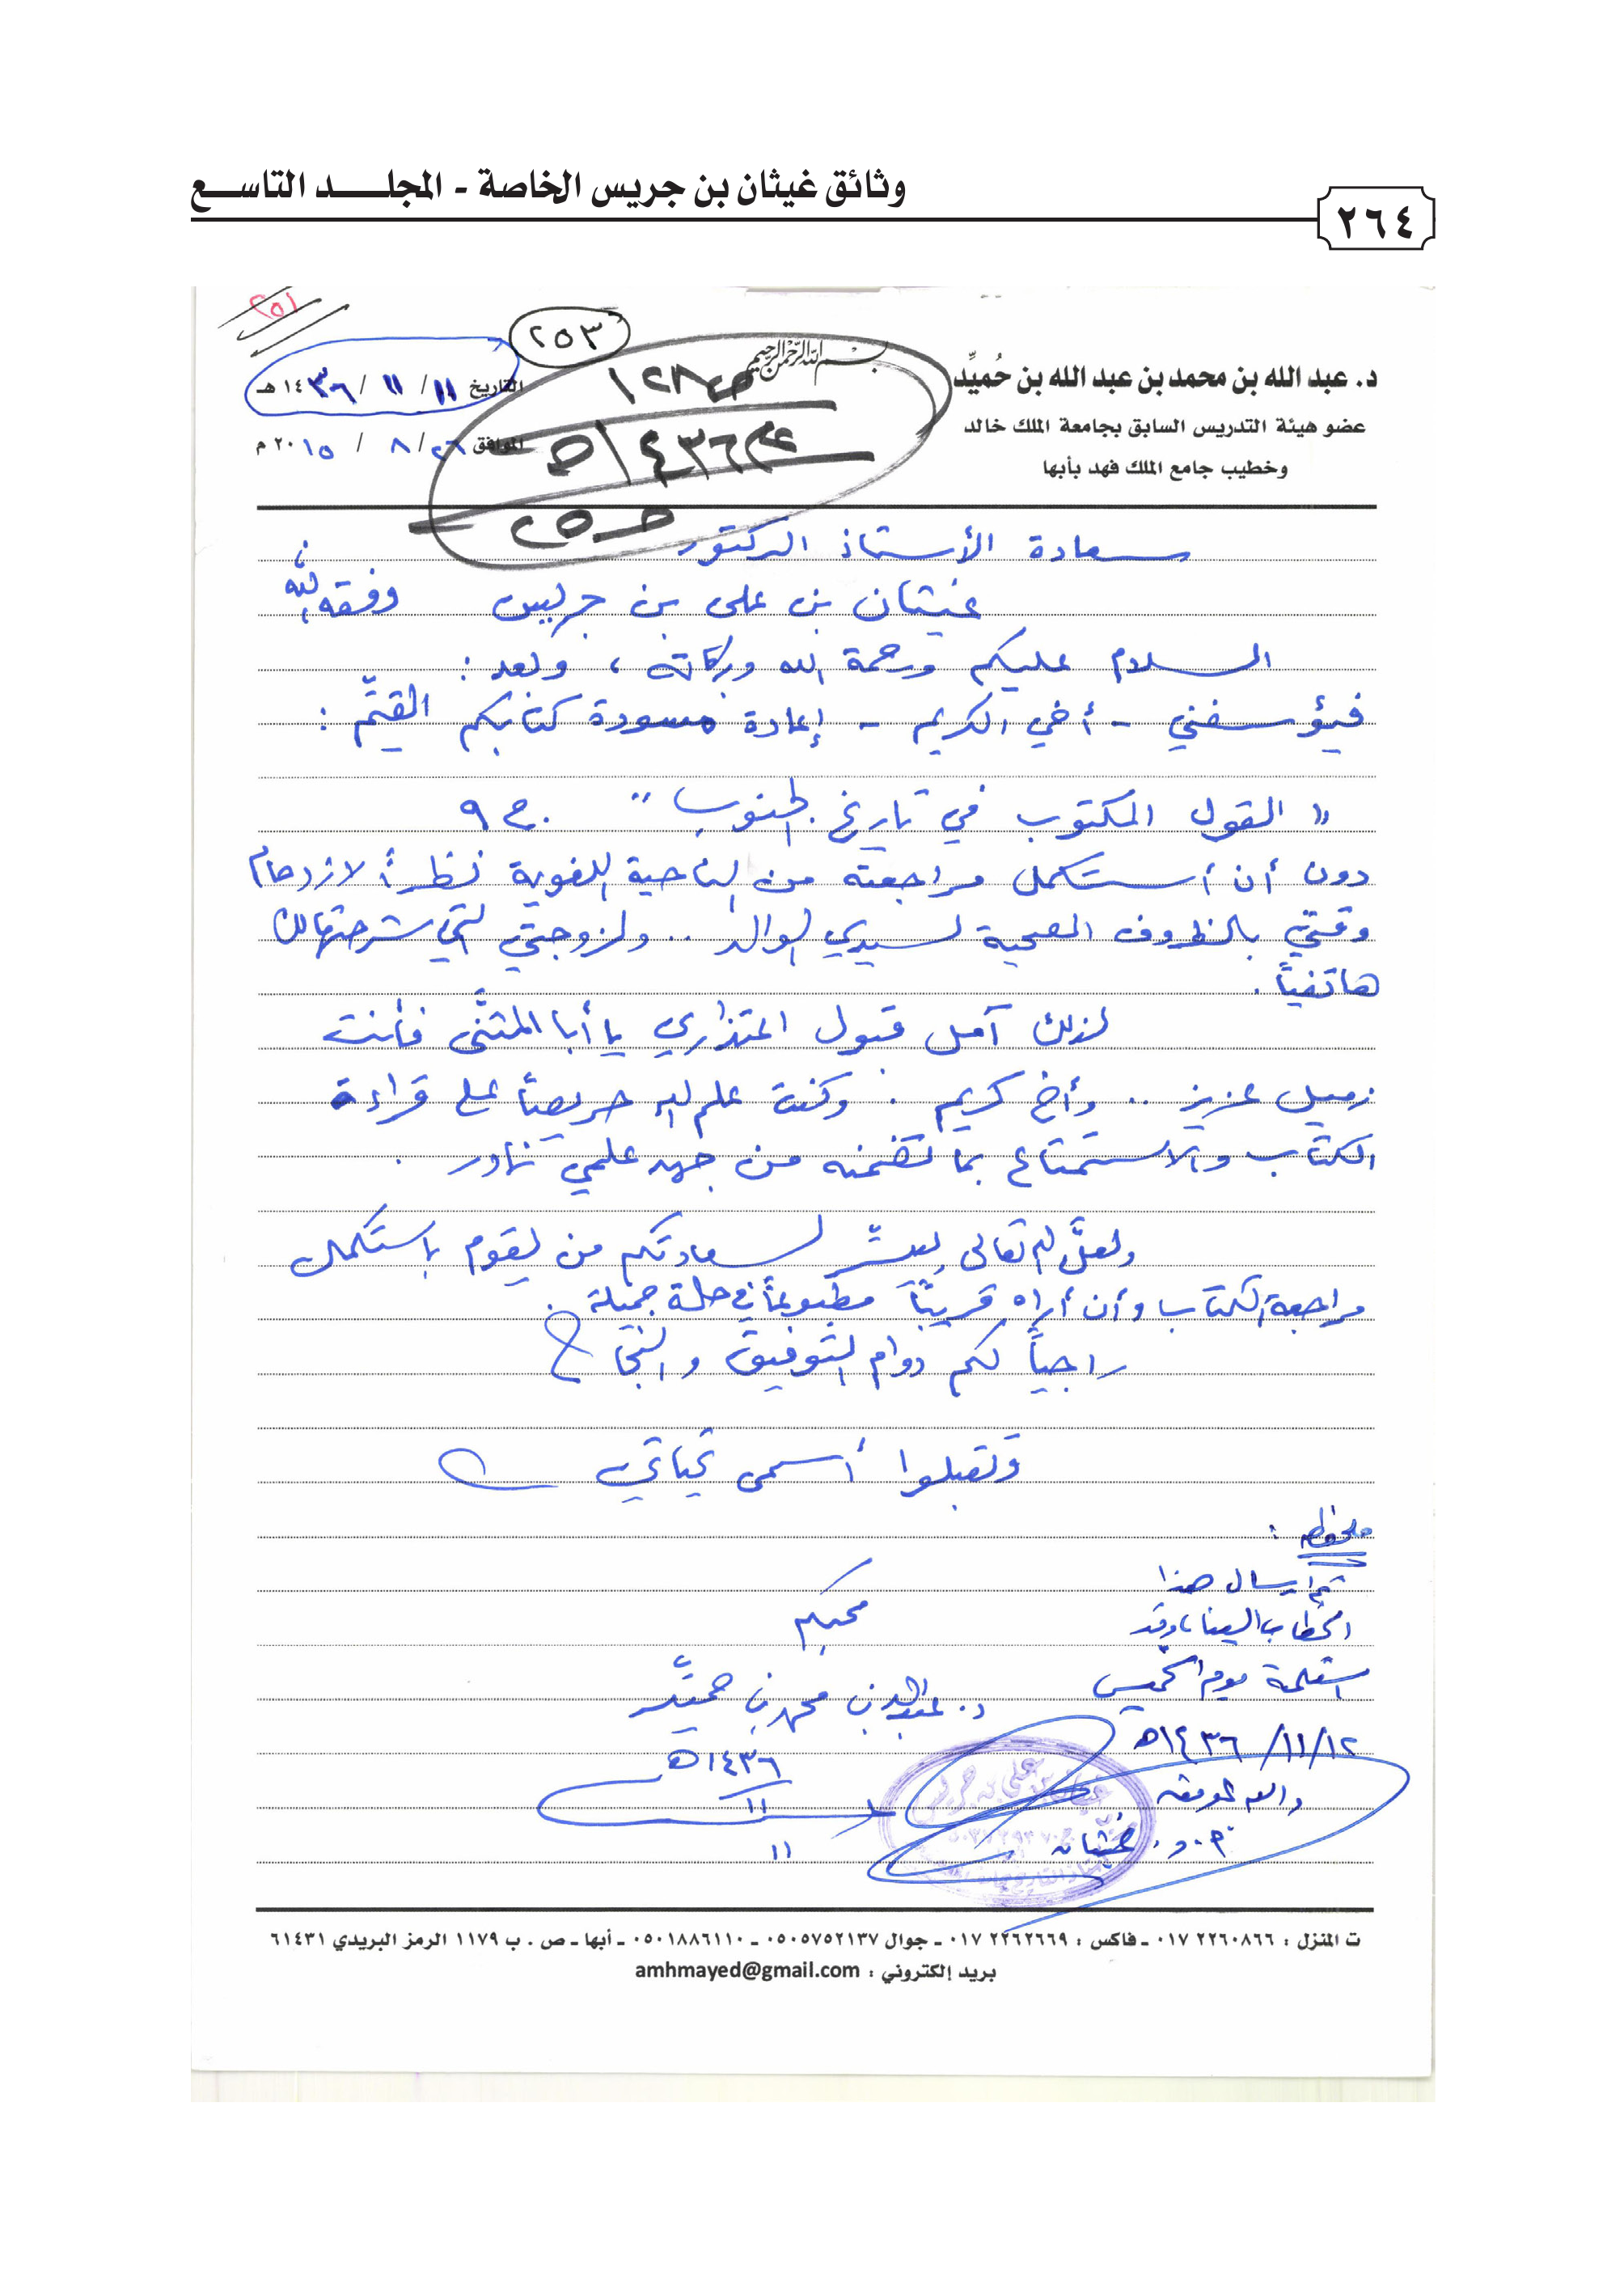 وثائق غيثان بن جريس الخاصة - المجلـــد التاســـع
٢٦٤
٢٥١
٢٥٣
بسم الله الرحمن الرحيم
د. عبد الله بن محمد بن عبد الله بن حُميِّد
عضو هيئة التدريس السابق بجامعة الملك خالد
وخطيب جامع الملك فهد بأبها
التاريخ ١١/ ١١/ ١٤٣٦هـ
الموافق ٢٦/ ٨/ ٢٠١٥م
ص١٢٨
١٤٣٦هـ
سعادة الأستاذ الدكتور
غيثان بن علي بن جريس وفقه الله
السلام عليكم ورحمة الله وبركاته ، وبعد :
فيؤسفني - أخي الكريم - إعادة مسودة كتابكم القيّم :
" القول المكتوب في تاريخ الجنوب " ج ٩
دون أن أستكمل مراجعته من الناحية اللغوية نظراً لازدحام
وقتي بالظروف الصحية لسيدي الوالد .. ولزوجتي التي شرحتها لك
هاتفياً .
لذلك آمل قبول اعتذاري يا أبا المثنّى فأنت
زميل عزيز .. وأخ كريم . وكنت علم الله حريصاً على قراءة
الكتاب والاستمتاع بما تضمنه من جهد علمي نادر .
ولعلَّ الله تعالى ييسّر لسعادتكم من يقوم باستكمال
مراجعة الكتاب وأن أراه قريباً مطبوعاً في حلة جميلة .
راجياً لكم دوام التوفيق والنجاح
وتقبلوا أسمى تحياتي
ملحوظة :
تم إرسال هذا
الخطاب إلينا ، وقد
استلمته يوم الخميس
١٢/ ١١/ ١٤٣٦هـ
والله الموفق
أ.د. غيثان
محبكم
د. عبدالله بن محمد بن حميّد
١٤٣٦هـ
١١
١١
غيثان بن علي بن جريس
ت المنزل : ٠١٧ ٢٢٦٠٨٦٦ ـ فاكس : ٠١٧ ٢٢٦٢٦٦٩ ـ جوال ٠٥٠٥٧٥٢١٣٧ ـ ٠٥٠١٨٨٦١١٠ ـ أبها ـ ص . ب ١١٧٩ الرمز البريدي ٦١٤٣١
بريد إلكتروني : amhmayed@gmail.com